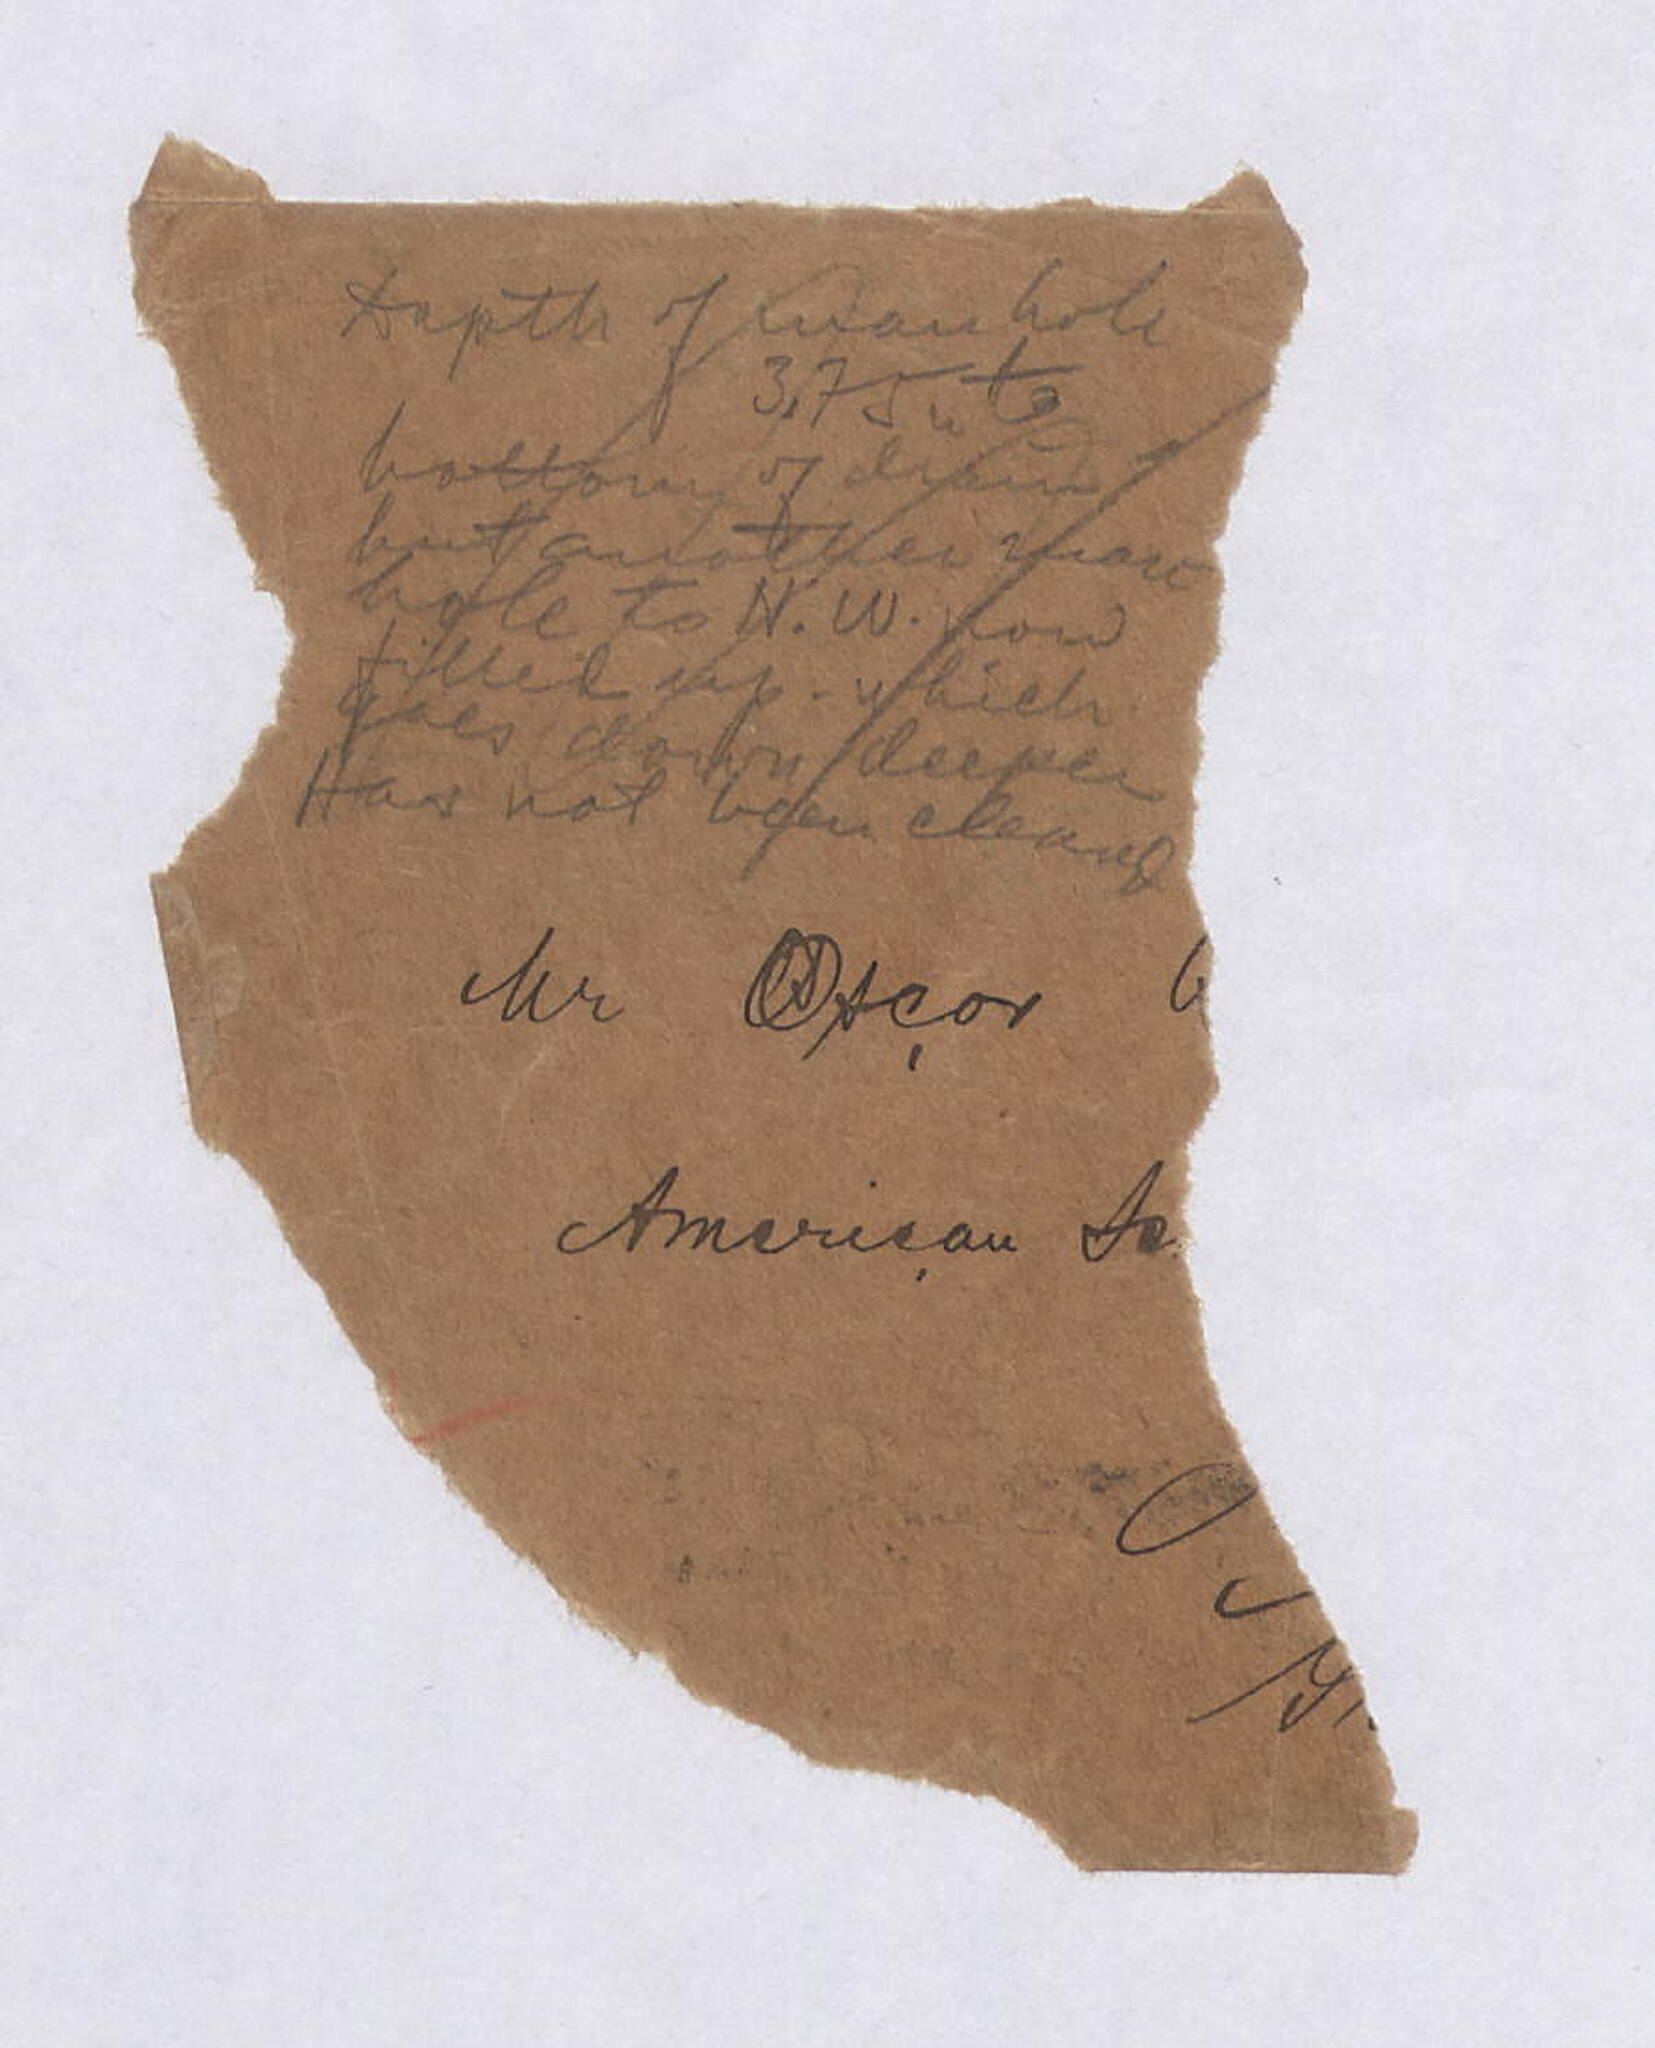 Depth of manhole
3,75 m to
bottom of drain
but another man
hole to N.W. now
filled up - which
goes down deeper
Has not been cleaned
Mr Oscar
American Sc